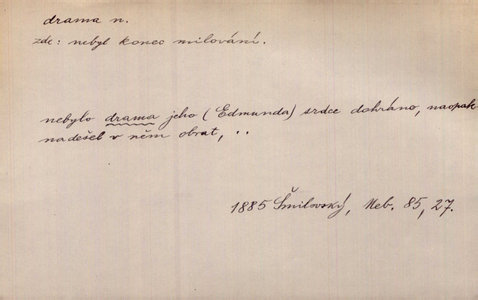 drama n.
zde: nebyl konec milování.
nebylo drama jeho (Edmunda) srdce dohráno, naopak
nadešel v něm obrat, ..
1885 Šmilovský, Neb. 85, 27.